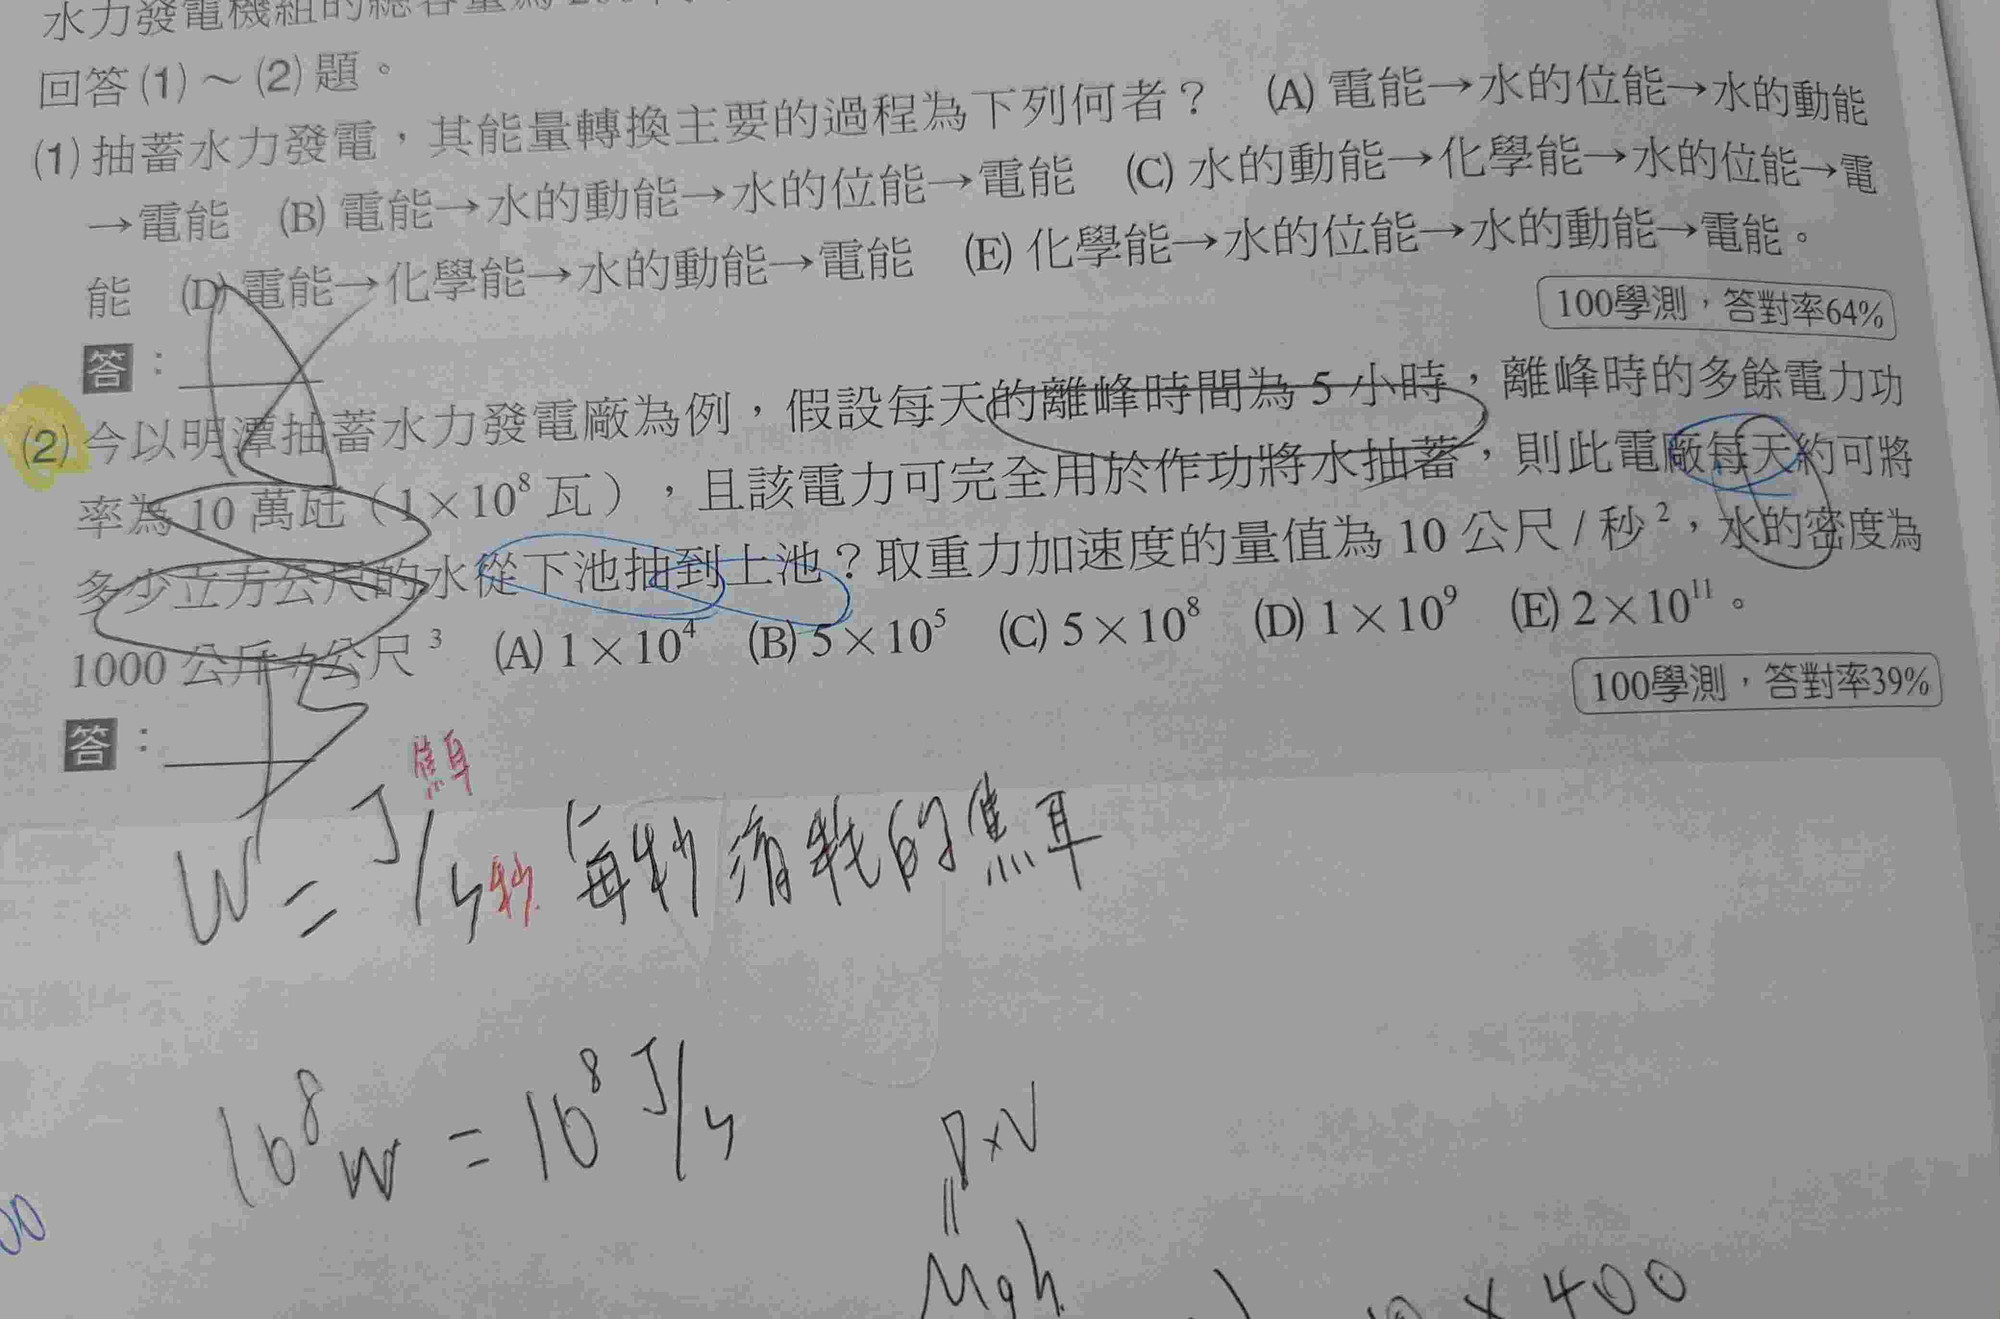 水力發電機組的總容量為
回答(1)～(2)題。
(1)抽蓄水力發電，其能量轉換主要的過程為下列何者？ (A)電能→水的位能→水的動能
→電能 (B)電能→水的動能→水的位能→電能 (C)水的動能→化學能→水的位能→電
能 (D)電能→化學能→水的動能→電能 (E)化學能→水的位能→水的動能→電能。
100學測，答對率64%
答：
(2)今以明潭抽蓄水力發電廠為例，假設每天的離峰時間為5小時，離峰時的多餘電力功
率為10萬瓩（1×10⁸瓦），且該電力可完全用於作功將水抽蓄，則此電廠每天約可將
多少立方公尺的水從下池抽到上池？取重力加速度的量值為10公尺/秒²，水的密度為
1000公斤/公尺³ (A)1×10⁴ (B)5×10⁵ (C)5×10⁸ (D)1×10⁹ (E)2×10¹¹。
100學測，答對率39%
答：
W = J焦耳/s秒 每秒消耗的焦耳
10⁸W = 10⁸ J/s
×V
Mgh
× 400